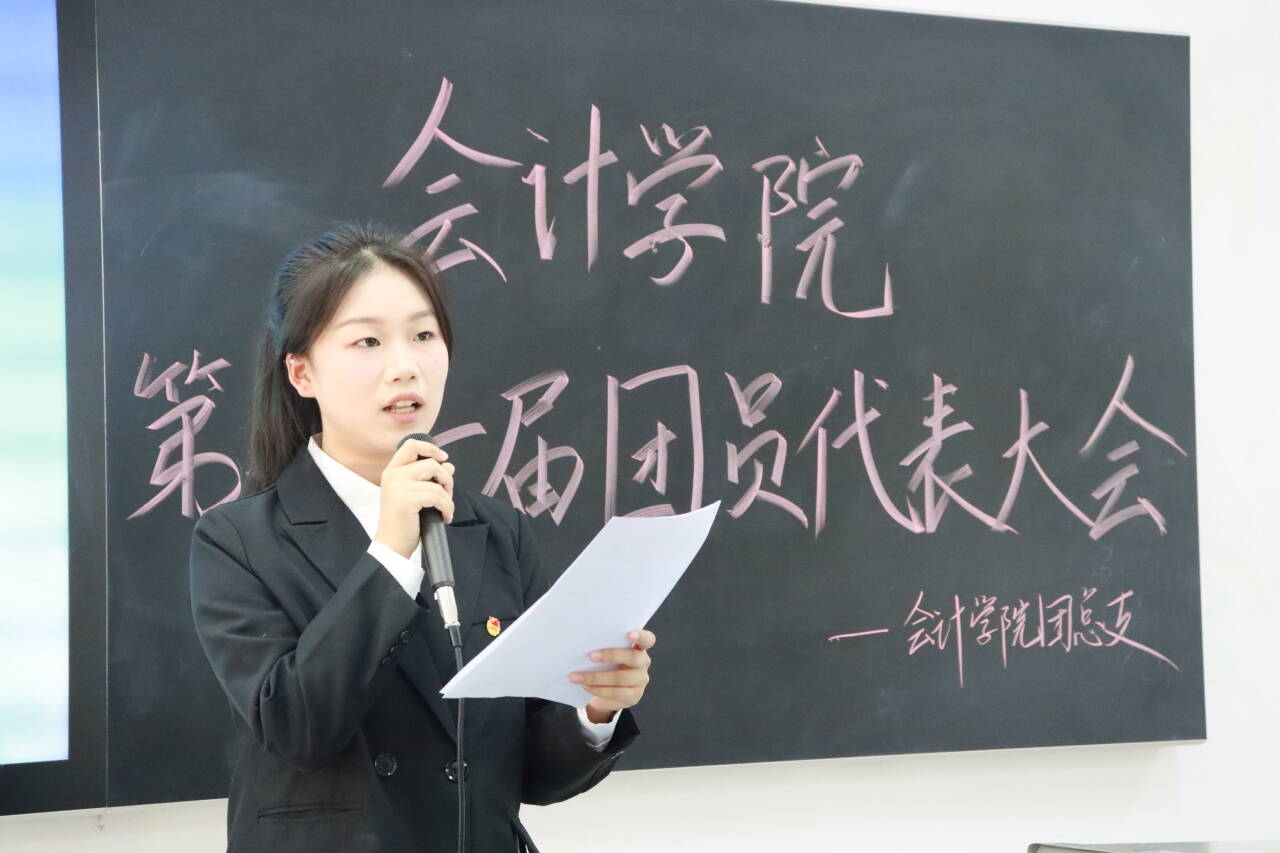 会计学院
第一届团员代表大会
—会计学院团总支